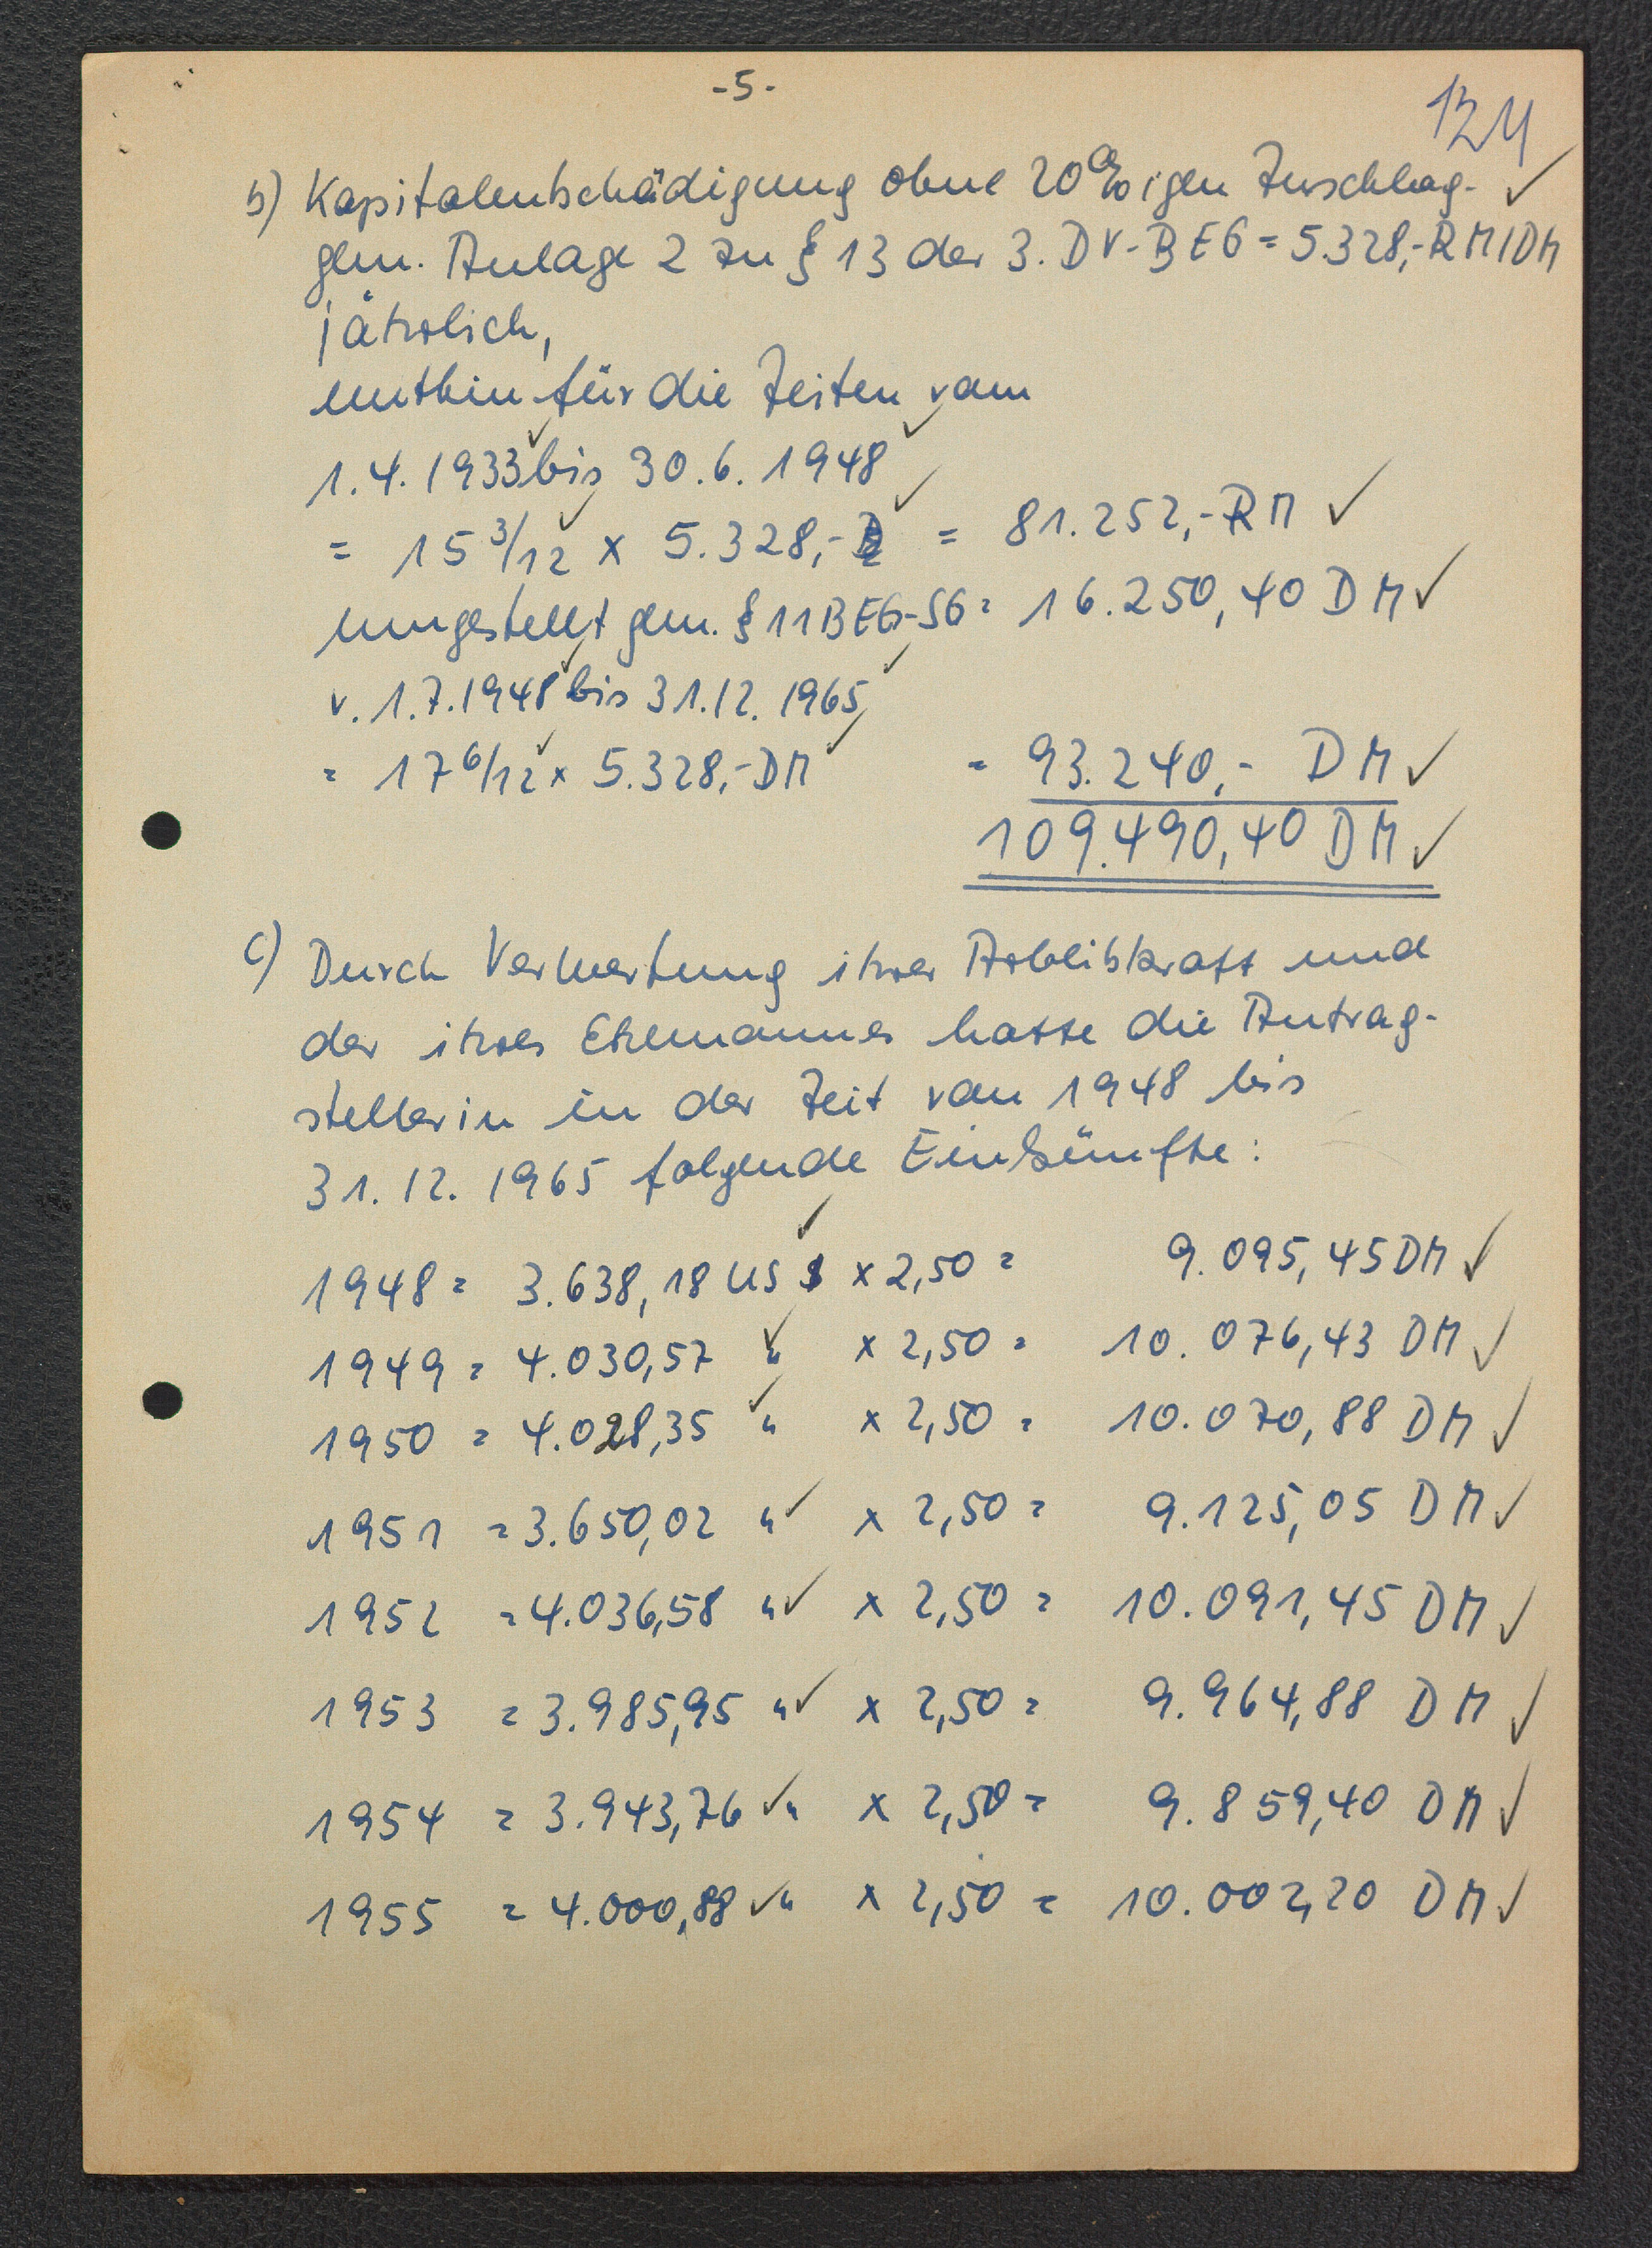 -5-
124
b) Kapitalentschädigung ohne 20%igen Zuschlag ✓
gem. Anlage 2 zu § 13 der 3. DV-BEG = 5.328,- RM/DM
jährlich,
mithin für die Zeiten vom
1.4.1933 ✓ bis 30.6.1948 ✓
= 15 3/12 ✓ x 5.328,- ✓ = 81.252,- RM ✓
umgestellt gem. § 11 BEG-SG = 16.250,40 DM ✓
v. 1.7.1948 ✓ bis 31.12.1965 ✓
= 17 6/12 ✓ x 5.328,- DM ✓ = 93.240,- DM ✓
109.490,40 DM ✓
c) Durch Verwertung ihrer Arbeitskraft und
der ihres Ehemannes hatte die Antrag-
stellerin in der Zeit von 1948 bis
31.12.1965 folgende Einkünfte:
1948 = 3.638,18 US $ ✓ x 2,50 = 9.095,45 DM ✓
1949 = 4.030,57 " ✓ x 2,50 = 10.076,43 DM ✓
1950 = 4.028,35 " ✓ x 2,50 = 10.070,88 DM ✓
1951 = 3.650,02 " ✓ x 2,50 = 9.125,05 DM ✓
1952 = 4.036,58 " ✓ x 2,50 = 10.091,45 DM ✓
1953 = 3.985,95 " ✓ x 2,50 = 9.964,88 DM ✓
1954 = 3.943,76 ✓ " x 2,50 = 9.859,40 DM ✓
1955 = 4.000,88 ✓ " x 2,50 = 10.002,20 DM ✓